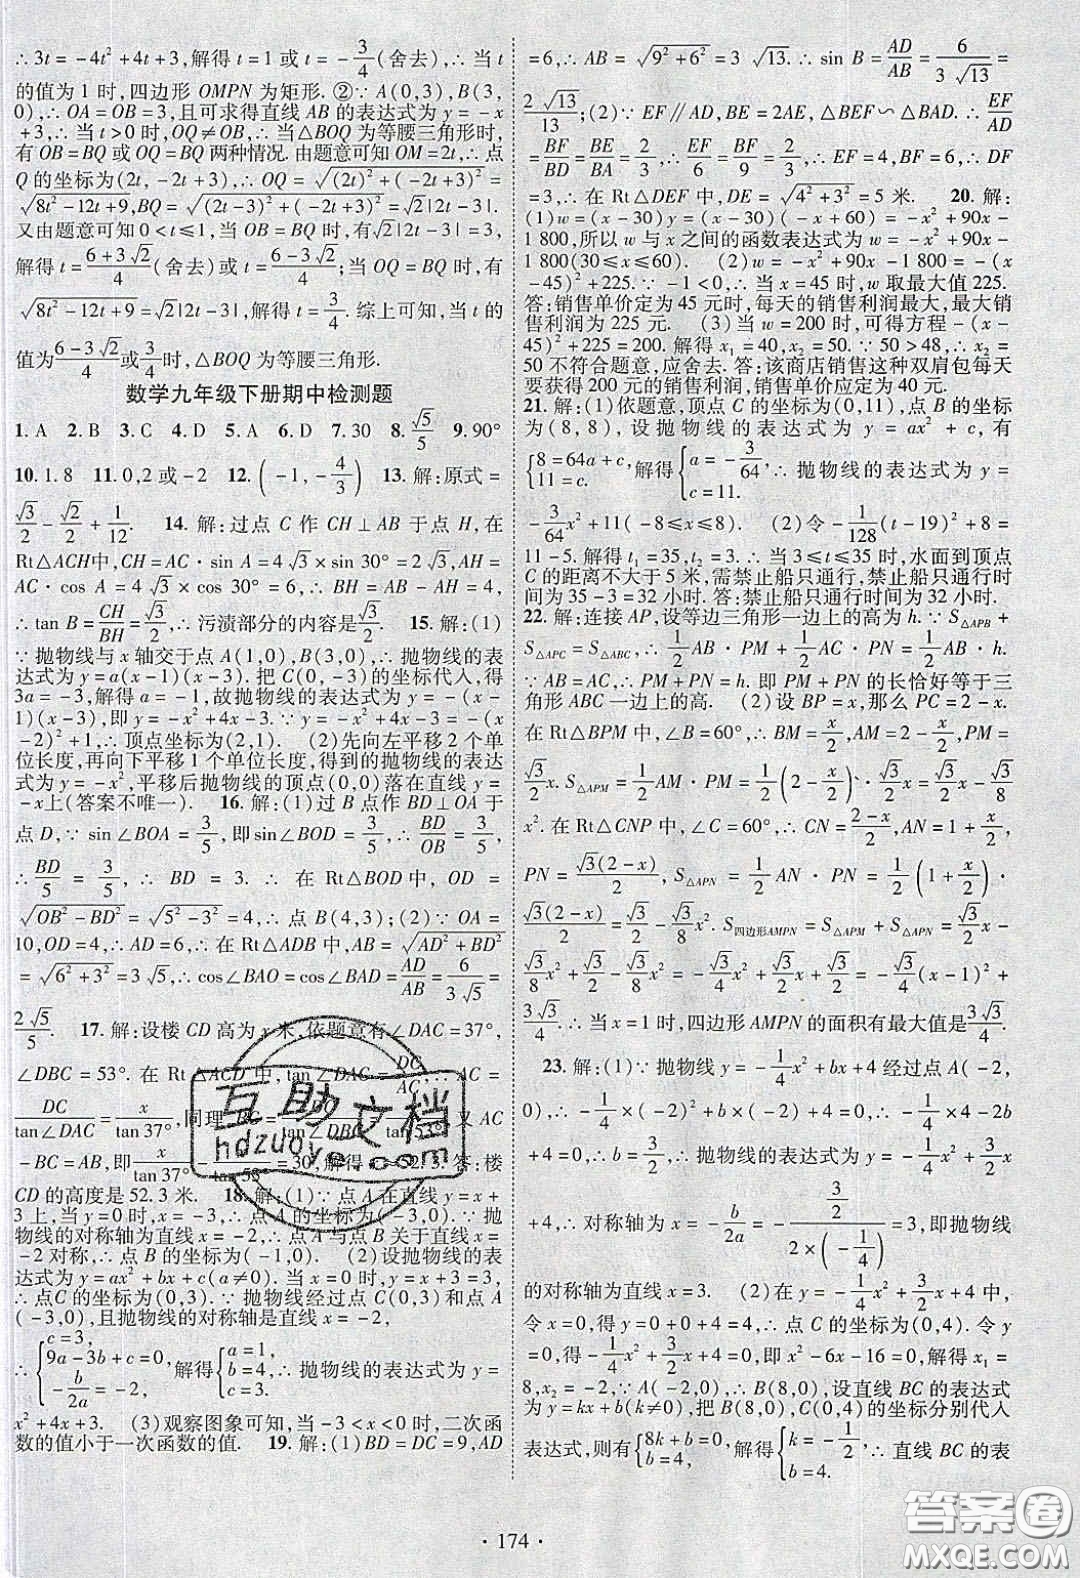 ∴3t=-4t²+4t+3,解得t=1或t=-3/4(舍去),∴当t
的值为1时,四边形OMPN为矩形.②∵A(0,3),B(3,
0),∴OA=OB=3,且可求得直线AB的表达式为y=-x
+3,∴当t>0时,OQ≠OB,∴当△BOQ为等腰三角形时,
有OB=BQ或OQ=BQ两种情况.由题意可知OM=2t,∴点
Q的坐标为(2t,-2t+3),∴OQ=√((2t)²+(-2t+3)²)=
√(8t²-12t+9),BQ=√((2t-3)²+(-2t+3)²)=√2|2t-3|.
又由题意可知0<t≤1,当OB=BQ时,有√2|2t-3|=3,
解得t=(6+3√2)/4(舍去)或t=(6-3√2)/4;当OQ=BQ时,有
√(8t²-12t+9)=√2|2t-3|,解得t=3/4.综上可知,当t的
值为(6-3√2)/4或3/4时,△BOQ为等腰三角形.
数学九年级下册期中检测题
1.A 2.B 3.C 4.D 5.A 6.D 7.30 8.√5/5 9.90°
10.1.8 11.0,2或-2 12.(-1,-4/3) 13.解:原式=
√3/2-√2/2+1/12. 14.解:过点C作CH⊥AB于点H,在
Rt△ACH中,CH=AC·sin A=4√3×sin 30°=2√3,AH=
AC·cos A=4√3×cos 30°=6,∴BH=AH-AB=4,
∴tan B=CH/BH=√3/2,∴污渍部分的内容是√3/2. 15.解:(1)
∵抛物线与x轴交于点A(1,0),B(3,0),∴抛物线的表
达式为y=a(x-1)(x-3).把C(0,-3)的坐标代入,得
3a=-3,解得a=-1,故抛物线的表达式为y=-(x-
1)(x-3),即y=-x²+4x-3.∵y=-x²+4x-3=-(x
-2)²+1,∴顶点坐标为(2,1). (2)先向左平移2个单
位长度,再向下平移1个单位长度,得到的抛物线的表达
式为y=-x²,平移后抛物线的顶点(0,0)落在直线y=
-x上(答案不唯一). 16.解:(1)过B点作BD⊥OA于
点D,∵sin∠BOA=3/5,即sin∠BOD=3/5,∴BD/OB=3/5,
∴BD/5=3/5,∴BD=3.在Rt△BOD中,OD=
√(OB²-BD²)=√(5²-3²)=4,∴点B(4,3);(2)∵OA=
10,OD=4,∴AD=6,∴在Rt△ADB中,AB=√(AD²+BD²)
=√(6²+3²)=3√5,∴cos∠BAO=cos∠BAD=AD/AB=6/(3√5)=
2√5/5. 17.解:设楼CD高为x米,依题意有∠DAC=37°,
∠DBC=53°.在Rt△ACD中,tan∠DAC=DC/AC,∴AC=
DC/tan∠DAC=x/tan 37°,同理BC= 53°.又AC
-BC=AB,即x/tan 37°- =30,解得 52.3.答:楼
CD的高度是52.3米. 18.解:(1)∵点A在直线y=x+
3上,当y=0时,x=-3,∴点A的坐标为(-3,0).∵抛
物线的对称轴为直线x=-2,∴点A与点B关于直线x=
-2对称,∴点B的坐标为(-1,0). (2)设抛物线的表
达式为y=ax²+bx+c(a≠0).当x=0时,y=x+3=3,
∴点C的坐标为(0,3).∵抛物线经过点C(0,3)和点A
(-3,0),且抛物线的对称轴是直线x=-2,
∴{c=3, 9a-3b+c=0, -b/2a=-2, 解得{a=1, b=4, c=3. ∴抛物线的表达式为y=
x²+4x+3. (3)观察图象可知,当-3<x<0时,二次函
数的值小于一次函数的值. 19.解:(1)BD=DC=9,AD
=6,∴AB=√(9²+6²)=3√13.∴sin B=AD/AB=6/(3√13)=
2√13/13;(2)∵EF∥AD,BE=2AE,△BEF∽△BAD.∴EF/AD
=BF/BD=BE/BA=2/3,∴EF/6=BF/9=2/3,∴EF=4,BF=6,∴DF
=3,∴在Rt△DEF中,DE=√(4²+3²)=5米. 20.解:
(1)w=(x-30)y=(x-30)(-x+60)=-x²+90x-
1 800,所以w与x之间的函数表达式为w=-x²+90x-
1 800(30≤x≤60). (2)w=-x²+90x-1 800=-(x
-45)²+225.∵-1<0,∴当x=45时,w取最大值225.
答:销售单价定为45元时,每天的销售利润最大,最大销
售利润为225元. (3)当w=200时,可得方程-(x-
45)²+225=200.解得x₁=40,x₂=50.∵50>48,∴x₂=
50不符合题意,应舍去.答:该商店销售这种双肩包每天
要获得200元的销售利润,销售单价应定为40元.
21.解:(1)依题意,顶点C的坐标为(0,11),点B的坐标
为(8,8),设抛物线的表达式为y=ax²+c,有
{8=64a+c, 11=c. 解得{a=-3/64, c=11. ∴抛物线的表达式为y=
-3/64x²+11(-8≤x≤8). (2)令-1/128(t-19)²+8=
11-5.解得t₁=35,t₂=3.∴当3≤t≤35时,水面到顶点
C的距离不大于5米,需禁止船只通行,禁止船只通行时
间为35-3=32小时.答:禁止船只通行时间为32小时.
22.解:连接AP,设等边三角形一边上的高为h.∵S△APB+
S△APC=S△ABC,∴1/2AB·PM+1/2AC·PN=1/2AB·h.
∵AB=AC,∴PM+PN=h.即PM+PN的长恰好等于三
角形ABC一边上的高. (2)设BP=x,那么PC=2-x.
在Rt△BPM中,∠B=60°,∴BM=x/2,AM=2-x/2,PM=
√3/2x.S△APM=1/2AM·PM=1/2(2-x/2)×√3/2x=√3/2x-√3/8
x².在Rt△CNP中,∠C=60°,∴CN=(2-x)/2,AN=1+x/2,
PN=√3(2-x)/2,S△APN=1/2AN·PN=1/2(1+x/2)·
√3(2-x)/2=√3/2-√3/8x².S四边形AMPN=S△APM+S△APN=√3/2x
-√3/8x²+√3/2-√3/8x²=-√3/4x²+√3/2x+√3/2=-√3/4(x-1)²+
3√3/4.∴当x=1时,四边形AMPN的面积有最大值是3√3/4.
23.解:(1)∵抛物线y=-1/4x²+bx+4经过点A(-2,
0),∴-1/4×(-2)²+b×(-2)+4=0,∴-1/4×4-2b
+4=0,∴b=3/2,∴抛物线的表达式为y=-1/4x²+3/2x
+4,∴对称轴为x=-b/2a=-(3/2)/(2×(-1/4))=3,即抛物线
的对称轴为直线x=3. (2)在y=-1/4x²+3/2x+4中,
令x=0,得y=0+0+4=4,∴点C的坐标为(0,4).令y
=0,得-1/4x²+3/2x+4=0,即x²-6x-16=0,解得x₁=
8,x₂=-2.∵A(-2,0),∴B(8,0),设直线BC的表达式
为y=kx+b(k≠0),把B(8,0),C(0,4)的坐标分别代入
表达式,则有{8k+b=0, b=4, 解得{k=-1/2, b=4. ∴直线BC的表
·174·
互助文档
hdzuoye.com
答案圈
MXQE.COM